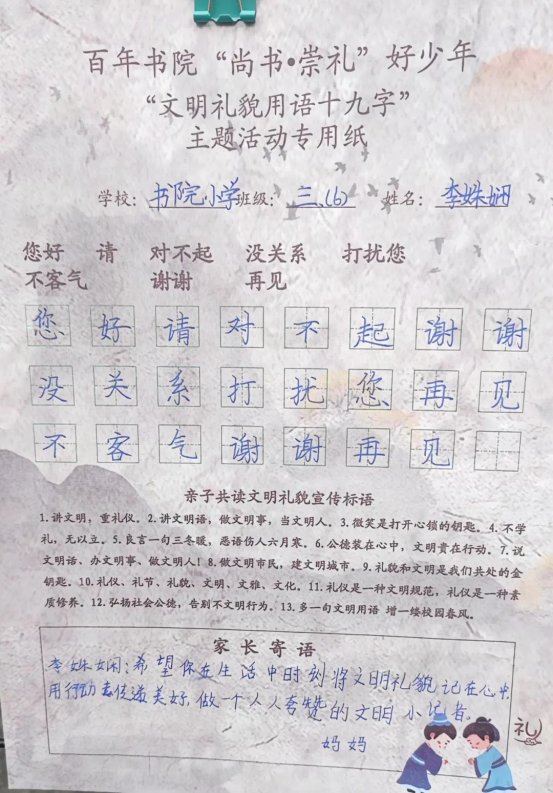 百年书院“尚书•崇礼”好少年
“文明礼貌用语十九字”
主题活动专用纸
学校：书院小学班级：三.(6) 姓名：李姝娴
您好 请 对不起 没关系 打扰您
不客气 谢谢 再见
您好请对不起谢谢
没关系打扰您再见
不客气谢谢再见
亲子共读文明礼貌宣传标语
1.讲文明，重礼仪。2.讲文明语，做文明事，当文明人。3.微笑是打开心锁的钥匙。4.不学
礼，无以立。5.良言一句三冬暖，恶语伤人六月寒。6.公德装在心中，文明贵在行动。7.说
文明话、办文明事、做文明人！8.做文明市民，建文明城市。9.礼貌和文明是我们共处的金
钥匙。10.礼仪、礼节、礼貌、文明、文雅、文化。11.礼仪是一种文明规范，礼仪是一种素
质修养。12.弘扬社会公德，告别不文明行为。13.多一句文明用语 增一缕校园春风。
家长寄语
李姝娴：希望你在生活中时刻将文明礼貌记在心中，
用行动去传递美好，做一个人人夸赞的文明小记者。
妈妈
礼